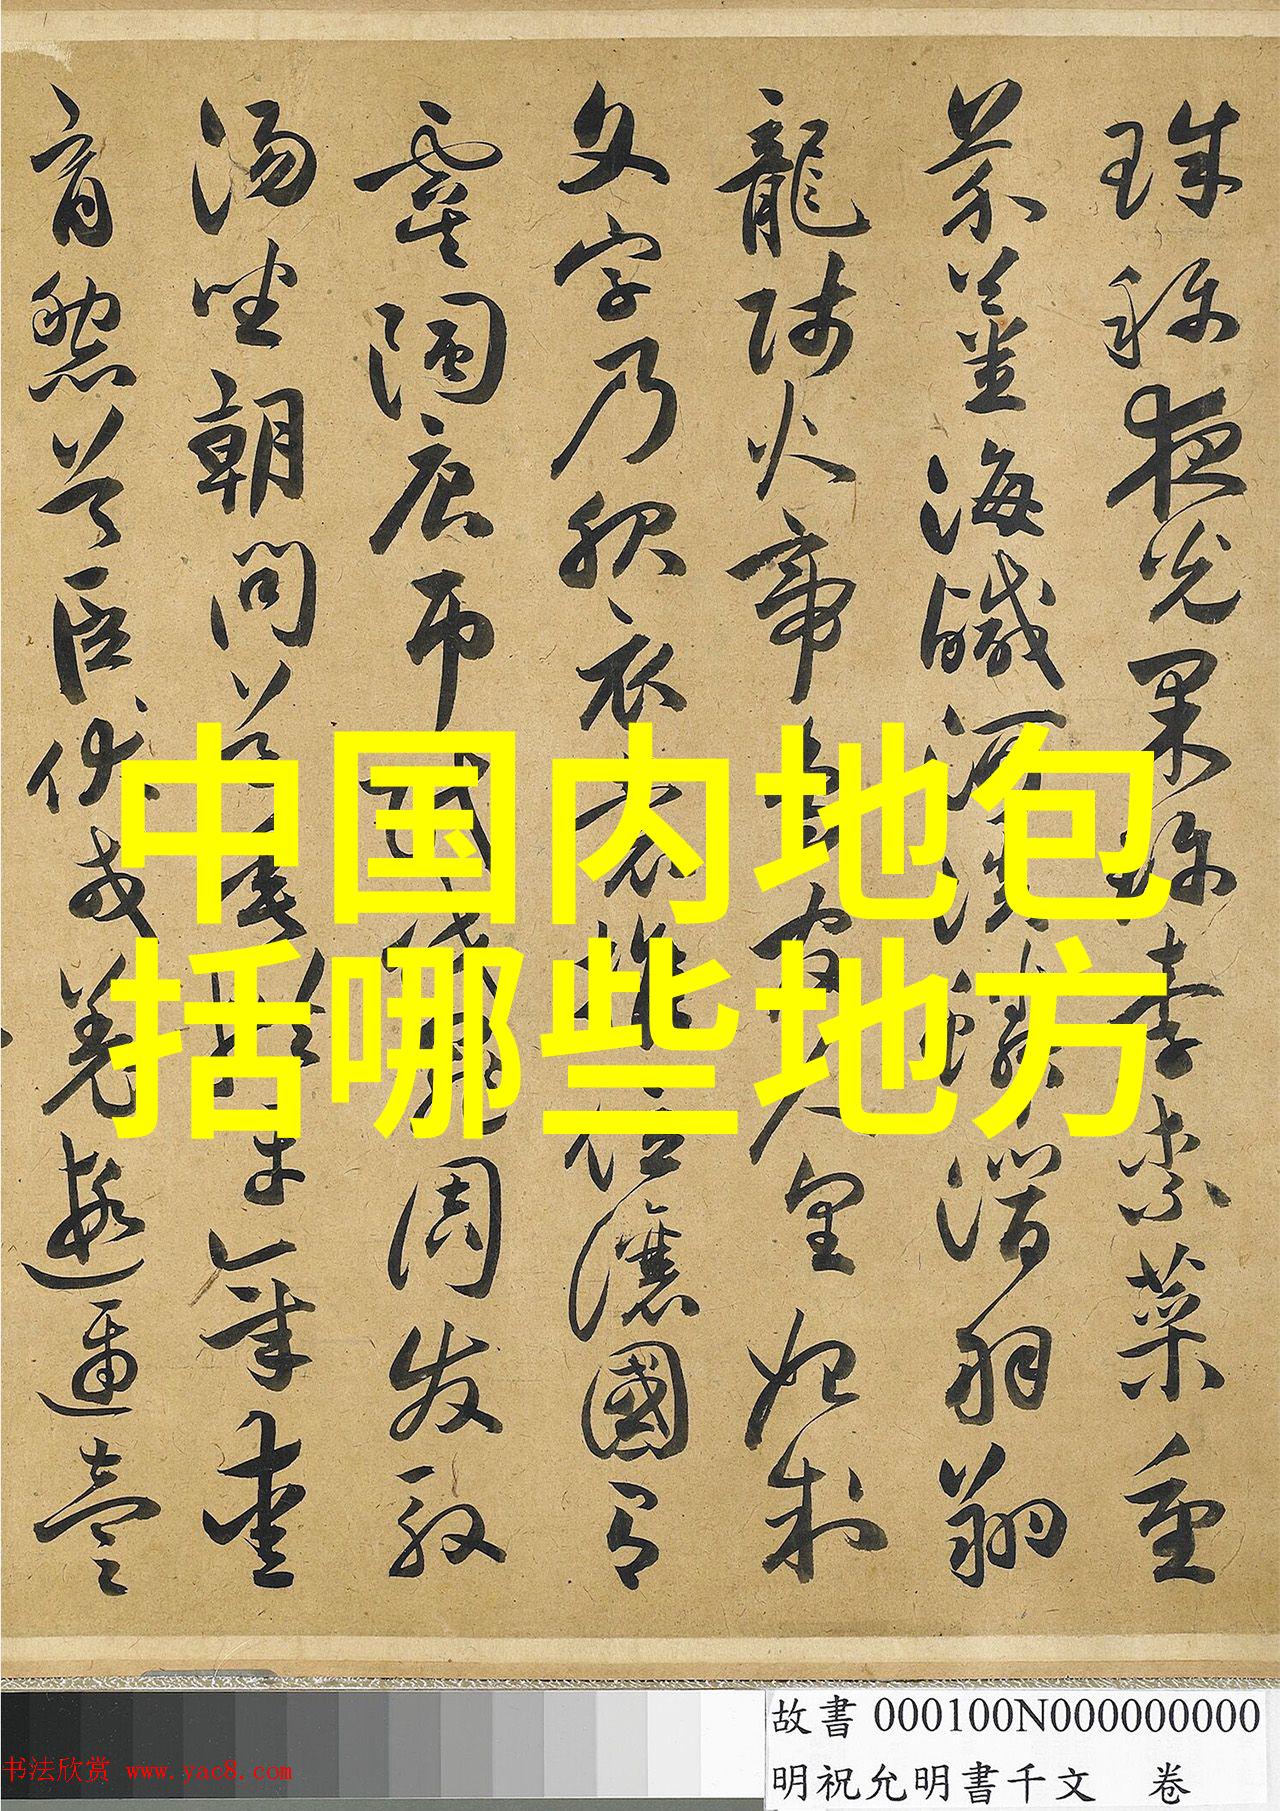 珠稱夜光果珍李柰菜重
芥薑海鹹河淡鱗潛羽翔
龍師火帝鳥官人皇始制
文字乃服衣裳推位讓國有
虞陶唐弔民伐罪周發殷
湯坐朝問道垂拱平章愛
育黎首臣伏戎羌遐邇壹
中国内地包
括哪些地方
故書 000100N000000000
明祝允明書千文 卷
书法欣赏 www.yac8.com